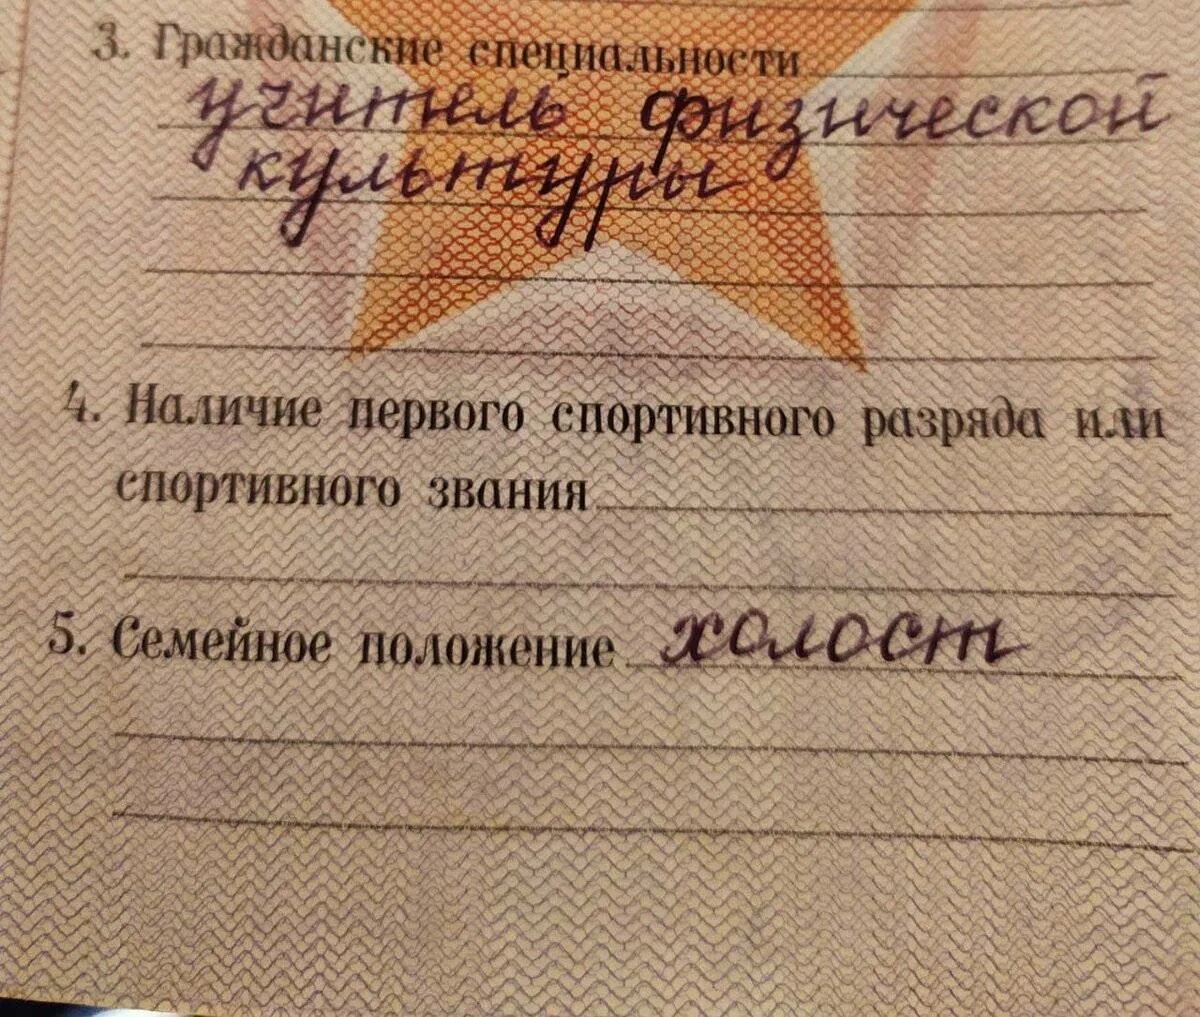 3. Гражданские специальности
учитель физической
культуры
4. Наличие первого спортивного разряда или
спортивного звания
5. Семейное положение холост